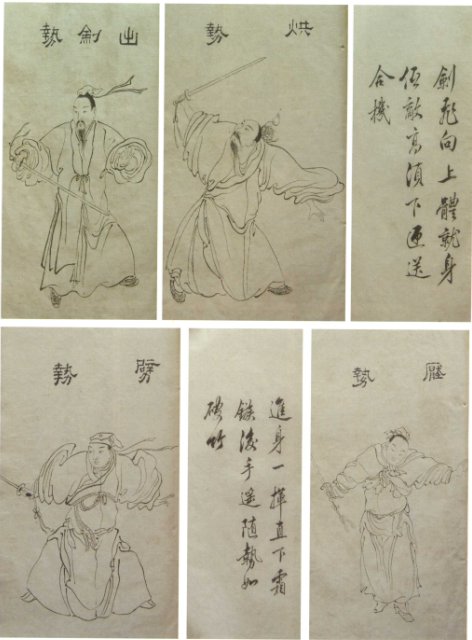 出劍勢
烘勢
劍飛向上體就身
任敵高須下送
合機
劈勢
進身一揮直下霜
鋒後手遙隨勢如
破竹
壓勢